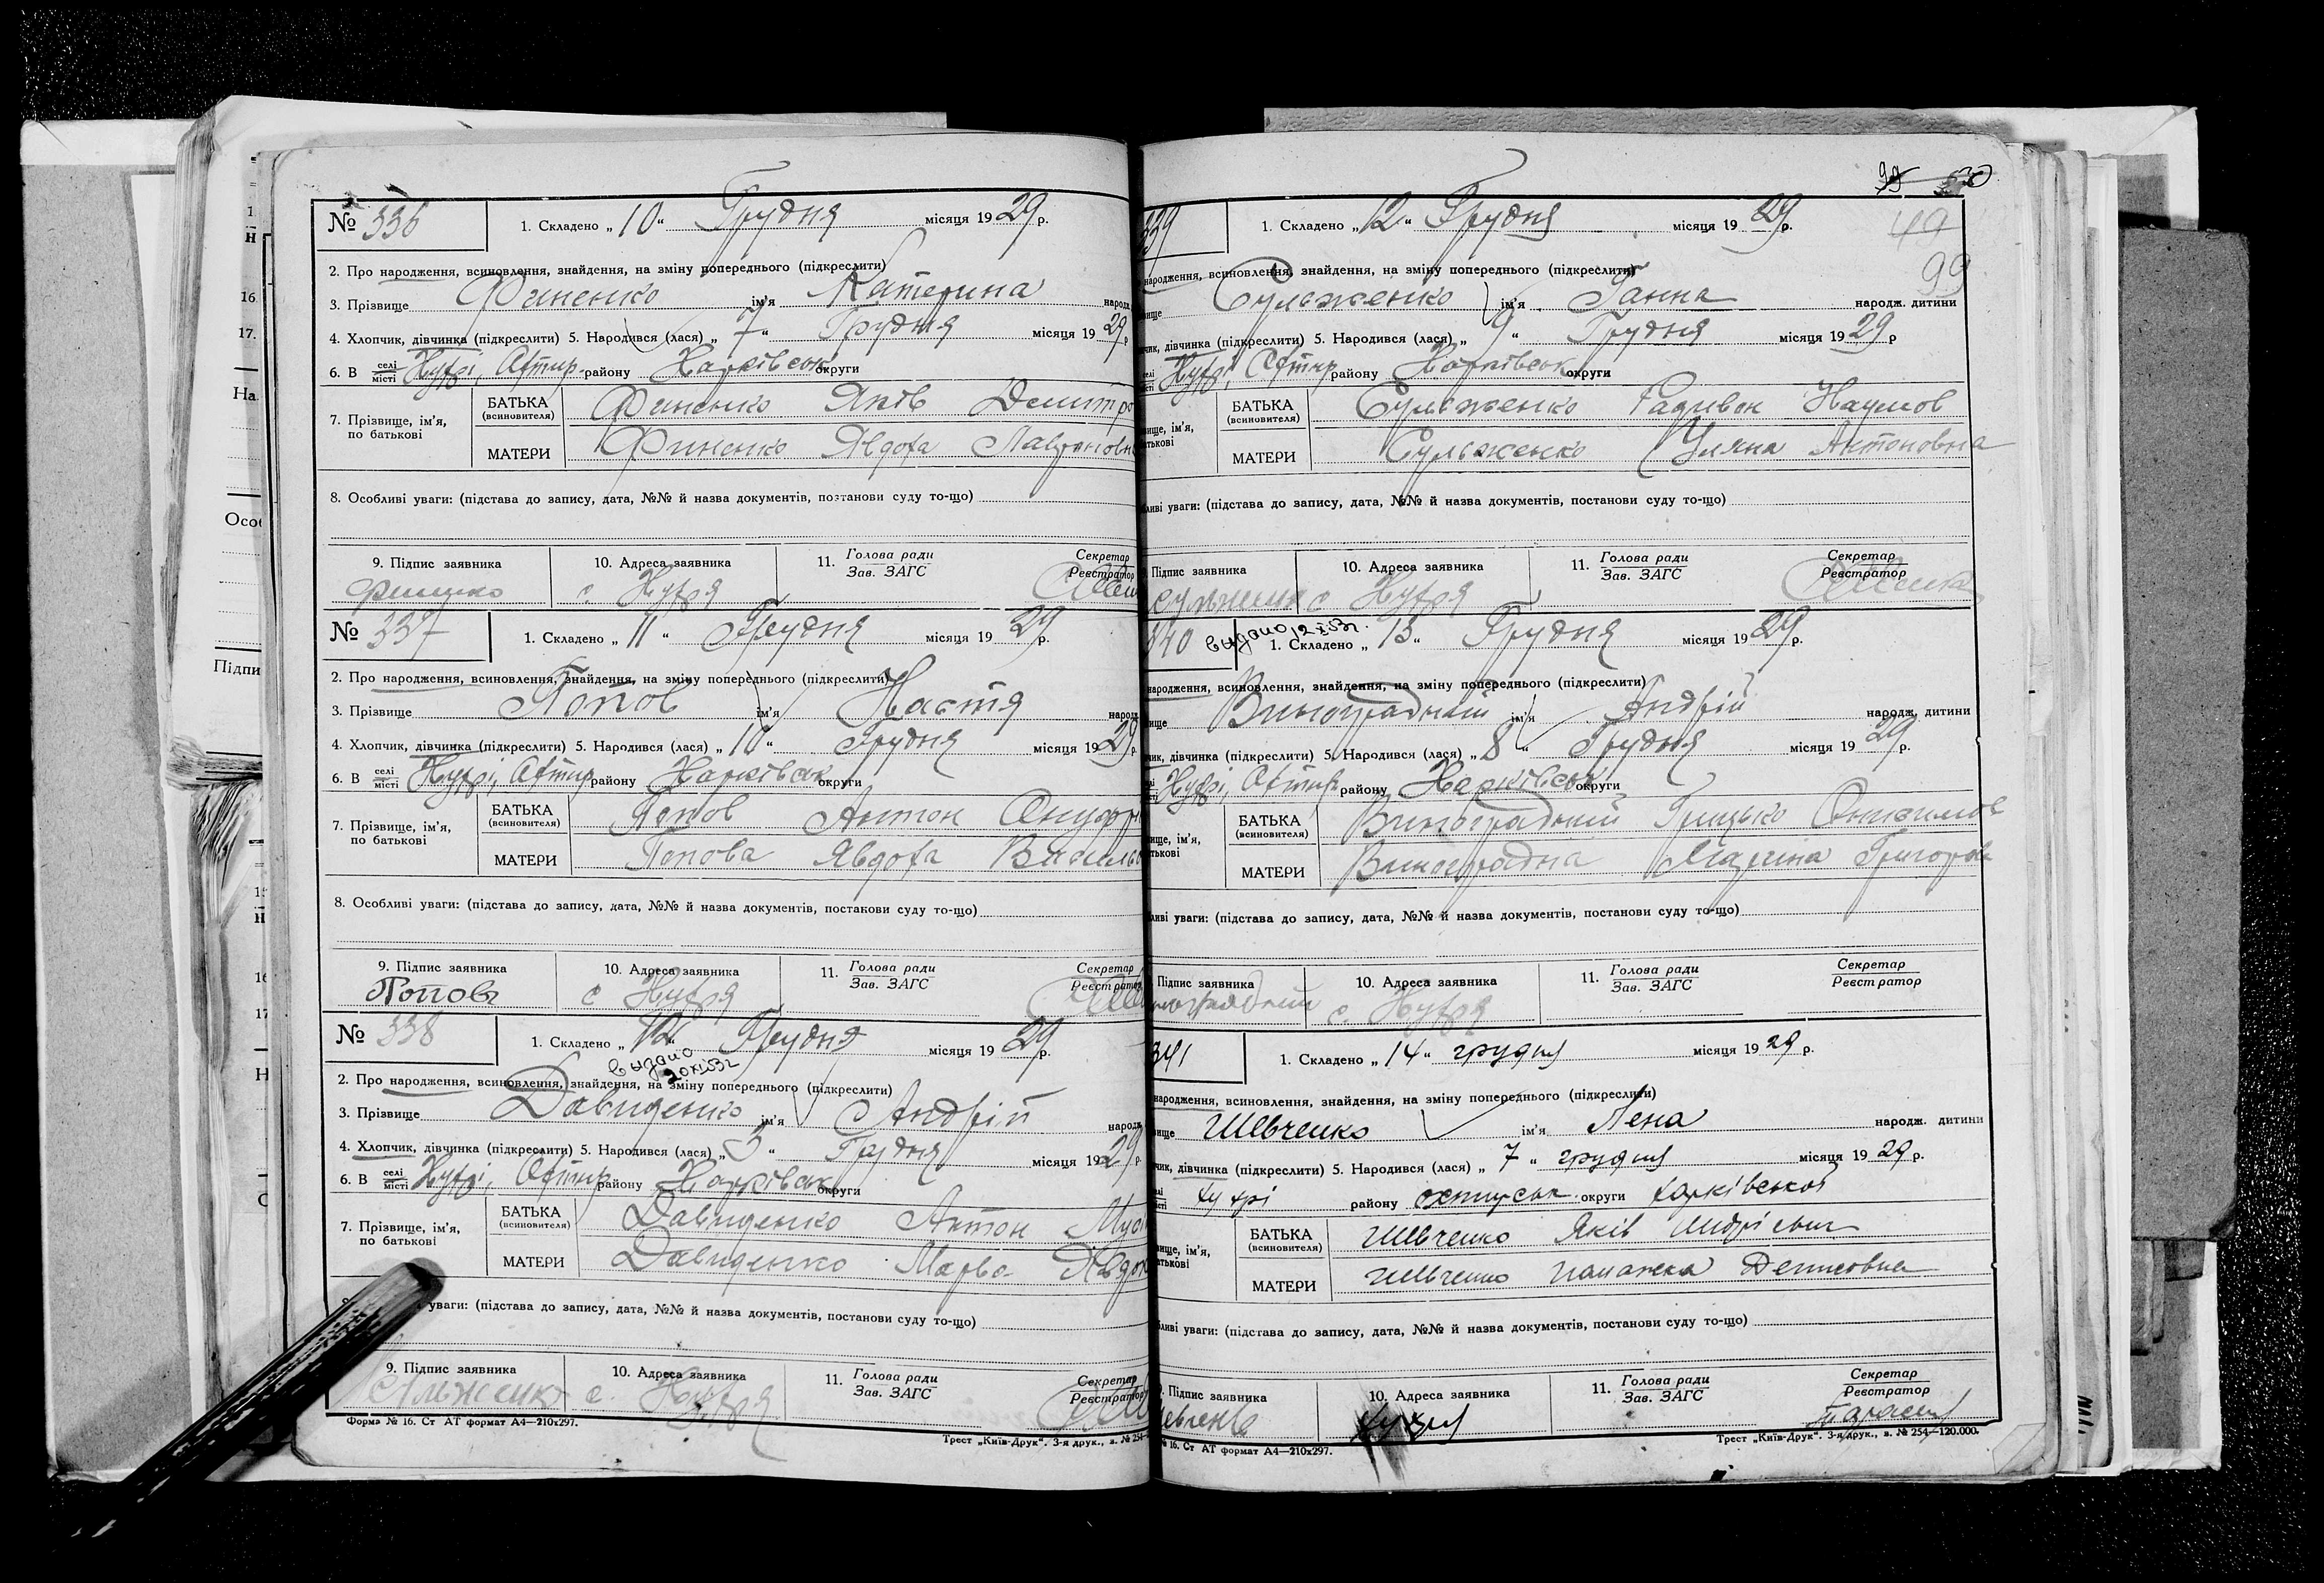 № 336
1. Складено „ 10 “ Грудня місяця 19 29 р.
2. Про народження, всиновлення, знайдення, на зміну попереднього (підкреслити)
3. Прізвище Финенко ім'я Катерина народж
4. Хлопчик, дівчинка (підкреслити) 5. Народився (лася) „ 7 “ Грудня місяця 19 29 р
6. В селі місті Хухрі, Охтир. району Харківськ округи
7. Прізвище, ім'я, по батькові
БАТЬКА (всиновителя) Финенко Яків Дмитро
МАТЕРИ Финенко Явдоха Лавріновн
8. Особливі уваги: (підстава до запису, дата, №№ й назва документів, постанови суду то-що)
9. Підпис заявника 10. Адреса заявника 11. Голова ради Зав. ЗАГС Секретар Реєстратор
с. Хухря
№ 337
1. Складено „ 11 “ Грудня місяця 19 29 р.
2. Про народження, всиновлення, знайдення, на зміну попереднього (підкреслити)
3. Прізвище Попов ім'я Настя народж
4. Хлопчик, дівчинка (підкреслити) 5. Народився (лася) „ 10 “ Грудня місяця 19 29 р.
6. В селі місті Хухрі, Охтир району Харківськ округи
7. Прізвище, ім'я, по батькові
БАТЬКА (всиновителя) Попов Антон Онуфрі
МАТЕРИ Попова Явдоха Васильо
8. Особливі уваги: (підстава до запису, дата, №№ й назва документів, постанови суду то-що)
9. Підпис заявника 10. Адреса заявника 11. Голова ради Зав. ЗАГС Секретар Реєстратор
Поповъ с Хухря
№ 338
1. Складено „ 12 “ Грудня місяця 19 29 р.
видано 20 XI 53г
2. Про народження, всиновлення, знайдення, на зміну попереднього (підкреслити)
3. Прізвище Давиденко ім'я Андрій народж
4. Хлопчик, дівчинка (підкреслити) 5. Народився (лася) „ 3 “ Грудня місяця 19 29 р.
6. В селі місті Хухрі, Охтир району Харківськ округи
7. Прізвище, ім'я, по батькові
БАТЬКА (всиновителя) Давиденко Антон
МАТЕРИ Давиденко Марва Явдок
уваги: (підстава до запису, дата, №№ й назва документів, постанови суду то-що)
9. Підпис заявника 10. Адреса заявника 11. Голова ради Зав. ЗАГС Секретар Реєстратор
с. Хухря
Форма № 16. Ст АТ формат А4—210х297.
Трест „Київ-Друк“. 3-я друк., з. № 254
99
49
99
339
1. Складено „ 12 “ Грудня місяця 19 29 р.
народження, всиновлення, знайдення, на зміну попереднього (підкреслити)
вище Сульженко ім'я Ганна народж. дитини
чик, дівчинка (підкреслити) 5. Народився (лася) „ 9 “ Грудня місяця 19 29 р
Хухрі, Охтир району Харківськ округи
вище, ім'я, батькові
БАТЬКА (всиновителя) Сульженко Радивон Наумов
МАТЕРИ Сульженко Уляна Антоновна
ливі уваги: (підстава до запису, дата, №№ й назва документів, постанови суду то-що)
Підпис заявника 10. Адреса заявника 11. Голова ради Зав. ЗАГС Секретар Реєстратор
с Хухря
340 видано 12 X 53г.
1. Складено „ 13 “ Грудня місяця 19 29 р.
народження, всиновлення, знайдення, на зміну попереднього (підкреслити)
вище Виноградний ім'я Андрій народж. дитини
чик, дівчинка (підкреслити) 5. Народився (лася) „ 8 “ Грудня місяця 19 29 р.
Хухрі, Охтир району Харківськ округи
вище, ім'я, батькові
БАТЬКА (всиновителя) Виноградний Грицько Онисимов
МАТЕРИ Виноградна Марина Григоров
ливі уваги: (підстава до запису, дата, №№ й назва документів, постанови суду то-що)
Підпис заявника 10. Адреса заявника 11. Голова ради Зав. ЗАГС Секретар Реєстратор
иноградний с. Хухря
341
1. Складено „ 14 “ грудня місяця 19 29 р.
народження, всиновлення, знайдення, на зміну попереднього (підкреслити)
вище Шевченко ім'я Лена народж. дитини
чик, дівчинка (підкреслити) 5. Народився (лася) „ 7 “ грудня місяця 19 29 р.
Хухрі району охтирськ округи харківської
вище, ім'я, батькові
БАТЬКА (всиновителя) Шевченко Яків Андрієвич
МАТЕРИ Шевченко Палажка Денисовна
ливі уваги: (підстава до запису, дата, №№ й назва документів, постанови суду то-що)
Підпис заявника 10. Адреса заявника 11. Голова ради Зав. ЗАГС Секретар Реєстратор
Хухря
№ 16. Ст АТ формат А4—210х297.
Трест „Київ-Друк“. 3-я друк., з. № 254—120.000.